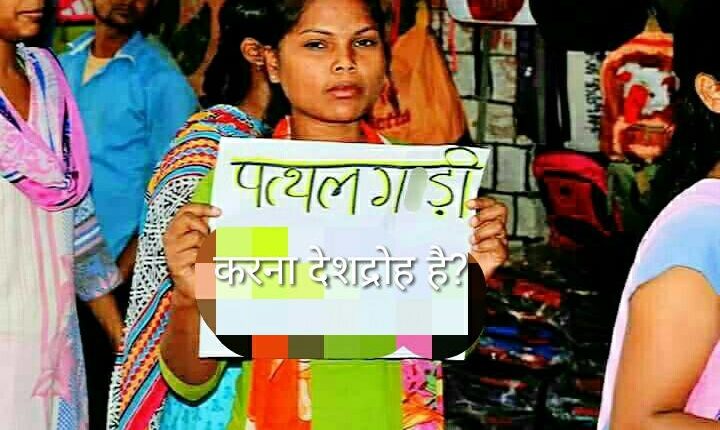 पत्थलगड़ी
करना देशद्रोह है?